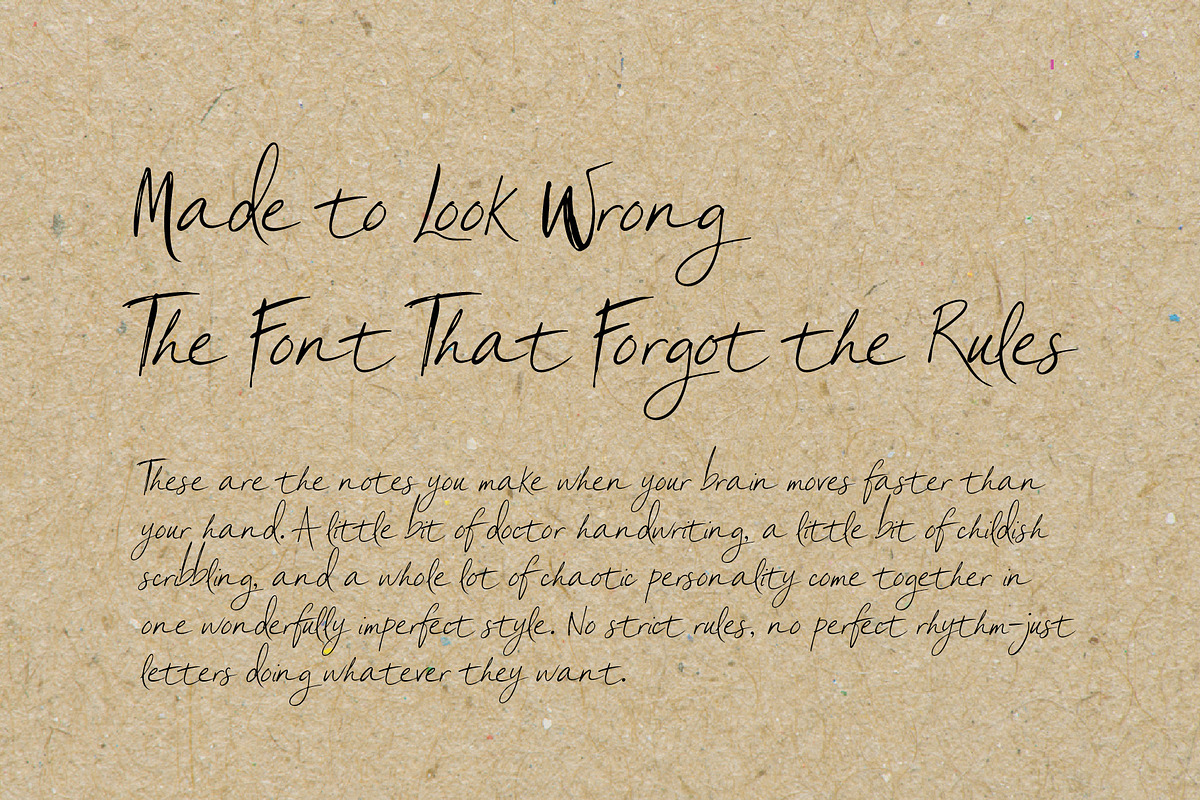 Made to Look Wrong
The Font That Forgot the Rules
These are the notes you make when your brain moves faster than
your hand. A little bit of doctor handwriting, a little bit of childish
scribbling, and a whole lot of chaotic personality come together in
one wonderfully imperfect style. No strict rules, no perfect rhythm-just
letters doing whatever they want.